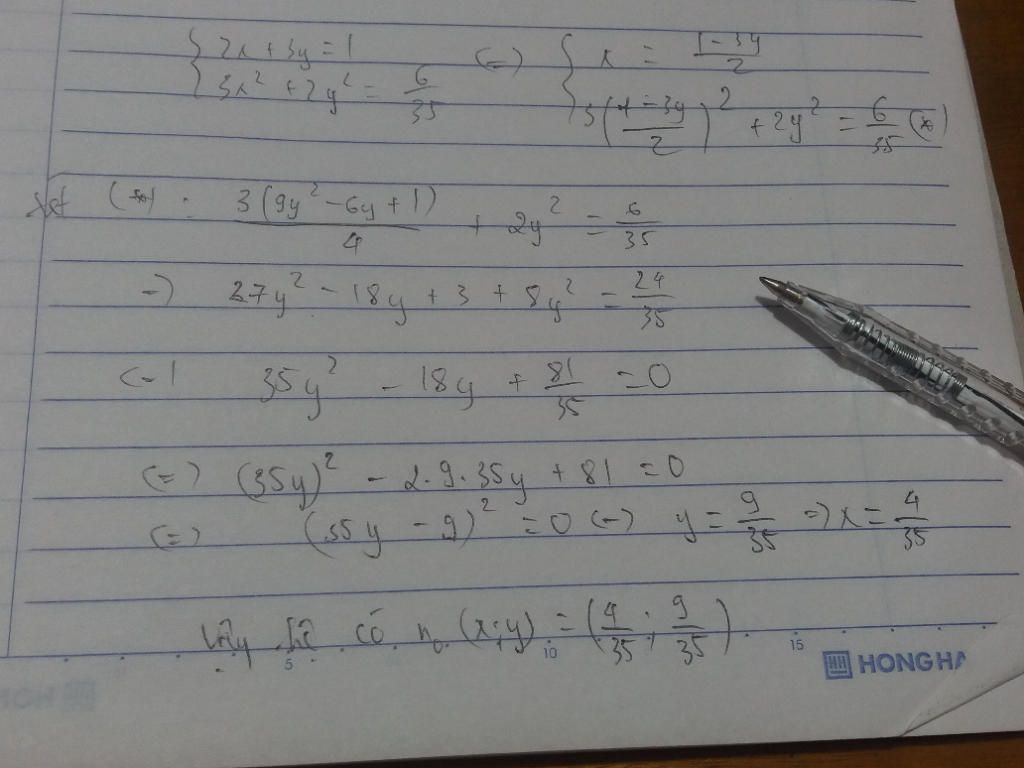 { 2x + 3y = 1 (=) { x = (1 - 3y)/2
3x² + 2y² = 6/35 3((1 - 3y)/2)² + 2y² = 6/35 (*)
Xét (*) : 3(9y² - 6y + 1)/4 + 2y² = 6/35
-) 27y² - 18y + 3 + 8y² = 24/35
(-) 35y² - 18y + 81/35 = 0
(=) (35y)² - 2.9.35y + 81 = 0
(=) (35y - 9)² = 0 (-) y = 9/35 => x = 4/35
Vậy hệ có n₀ (x;y) = (4/35 ; 9/35)
5 10 15 HONG HA